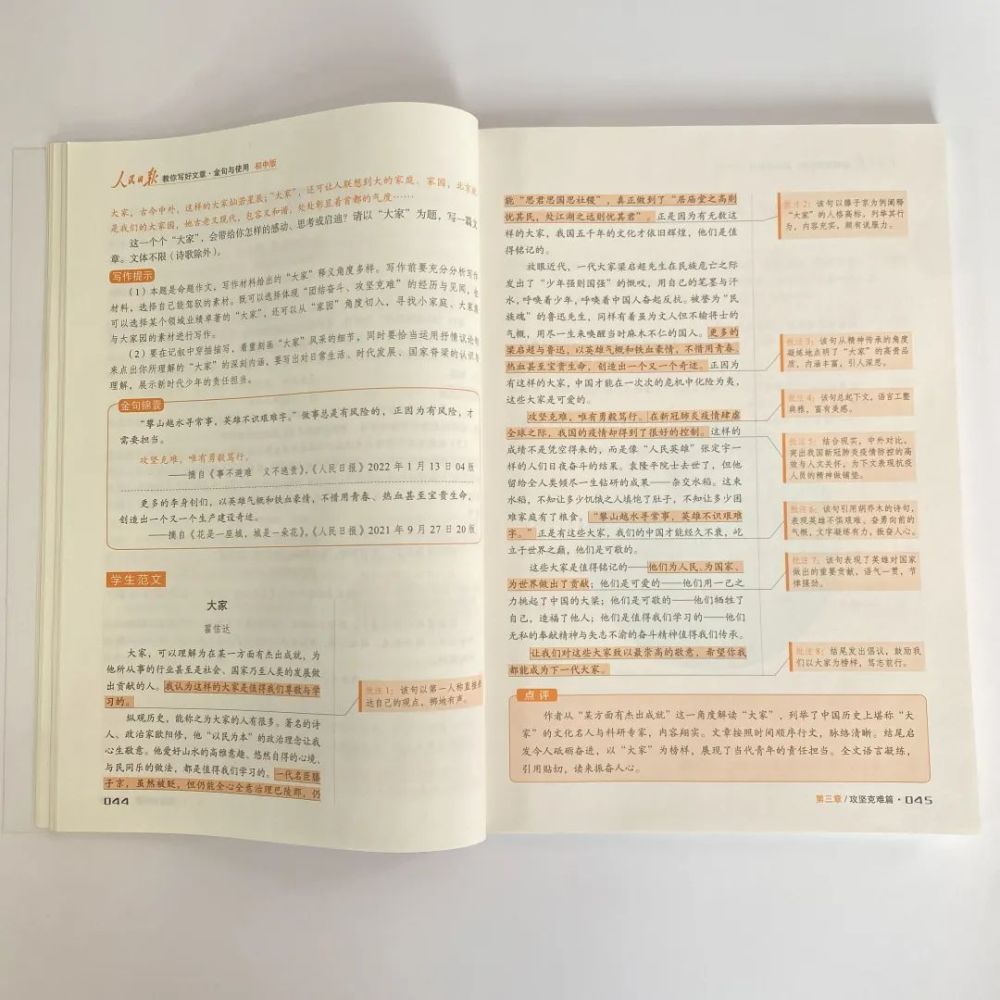 人民日报 教你写好文章·金句与使用 初中版
大家，古今中外，这样的大家灿若星辰；“大家”，还可让人联想到大的家庭、家园，北京就
是我们的大家园，她古老又现代，包容又和谐，处处彰显着首都的气度……
这一个个“大家”，会带给你怎样的感动、思考或启迪？请以“大家”为题，写一篇文
章。文体不限（诗歌除外）。
写作提示
（1）本题是命题作文，写作材料给出的“大家”释义角度多样。写作前要充分分析写作
材料，选择自己能驾驭的素材。既可以选择体现“团结奋斗、攻坚克难”的经历与见闻，也
可以选择某个领域业绩卓著的“大家”，还可以从“家园”角度切入，寻找小家庭、大家庭
与大家园的素材进行写作。
（2）要在记叙中穿插描写，着重刻画“大家”风采的细节，同时要恰当运用抒情议论的
来点出你所理解的“大家”的深刻内涵，要写出对日常生活、时代发展、国家脊梁的认识与
理解，展示新时代少年的责任担当。
金句锦囊
“攀山越水寻常事，英雄不识艰难字。”做事总是有风险的，正因为有风险，才
需要担当。
攻坚克难，唯有勇毅笃行。
——摘自《事不避难 义不逃责》，《人民日报》2022年1月13日04版
更多的李身创们，以英雄气概和铁血豪情，不惜用青春、热血甚至宝贵生命，
创造出一个又一个生产建设奇迹。
——摘自《花是一座城，城是一朵花》，《人民日报》2021年9月27日20版
学生范文
大家
翟信达
大家，可以理解为在某一方面有杰出成就，为
他所从事的行业甚至是社会、国家乃至人类的发展做
出贡献的人。我认为这样的大家是值得我们尊敬与学
习的。
批注1：该句以第一人称直接表
达自己的观点，掷地有声。
纵观历史，能称之为大家的人有很多。著名的诗
人、政治家欧阳修，他“以民为本”的政治理念让我
心生敬意。他爱好山水的高雅意趣、悠然自得的心境、
与民同乐的做法，都是值得我们学习的。一代名臣滕
子京，虽然被贬，但仍能全心全意治理巴陵郡，仍
044
能“思君思国思社稷”，真正做到了“居庙堂之高则
忧其民，处江湖之远则忧其君”。正是因为有无数这
样的大家，我国五千年的文化才依旧辉煌，他们是值
得铭记的。
批注2：该句以滕子京为例阐释
“大家”的人格高标，列举其行
为，内容充实，颇有说服力。
放眼近代，一代大家梁启超先生在民族危亡之际
发出了“少年强则国强”的慨叹，用自己的笔墨与汗
水，呼唤着少年，呼唤着中国人奋起反抗。被誉为“民
族魂”的鲁迅先生，同样有着虽为文人但不输将士的
气概，用尽一生来唤醒当时麻木不仁的国人。更多的
梁启超与鲁迅，以英雄气概和铁血豪情，不惜用青春、
热血甚至宝贵生命，创造出一个又一个奇迹。正因为
有这样的大家，中国才能在一次次的危机中化险为夷，
这些大家是可爱的。
批注3：该句从精神传承的角度
凝练地点明了“大家”的高贵品
质，内涵丰富，引人深思。
攻坚克难，唯有勇毅笃行。在新冠肺炎疫情肆虐
全球之际，我国的疫情却得到了很好的控制。这样的
成绩不是凭空得来的，而是像“人民英雄”张定宇一
样的人们日夜奋斗的结果。袁隆平院士去世了，但他
留给全人类倾尽一生钻研的成果——杂交水稻。这束
水稻，不知让多少饥饿之人填饱了肚子，不知让多少困
难家庭有了粮食。“攀山越水寻常事，英雄不识艰难
字。”正是有这些大家，我们的中国才能经久不衰，屹
立于世界之巅，他们是可敬的。
批注4：该句总起下文，语言工整
典雅，富有美感。
批注5：结合现实，中外对比，
突出我国新冠肺炎疫情防控的高
效与人文关怀，为下文表现抗疫
人员的精神做铺垫。
批注6：该句引用胡乔木的诗句，
表现英雄不惧艰难、奋勇向前的
气概，文字凝练有力，振奋人心。
这些大家是值得铭记的——他们为人民、为国家、
为世界做出了贡献；他们是可爱的——他们用一己之
力挑起了中国的大梁；他们是可敬的——他们牺牲了
自己，造福了他人；他们是值得我们学习的——他们
无私的奉献精神与矢志不渝的奋斗精神值得我们传承。
批注7：该句表现了英雄对国家
做出的重要贡献，语气一贯，节
律强劲。
让我们对这些大家致以最崇高的敬意，希望你我
都能成为下一代大家。
批注8：结尾发出倡议，鼓励我
们以大家为榜样，笃志前行。
点评
作者从“某方面有杰出成就”这一角度解读“大家”，列举了中国历史上堪称“大
家”的文化名人与科研专家，内容翔实。文章按照时间顺序行文，脉络清晰。结尾启
发今人砥砺奋进，以“大家”为榜样，展现了当代青年的责任担当。全文语言凝练，
引用贴切，读来振奋人心。
第三章/攻坚克难篇·045